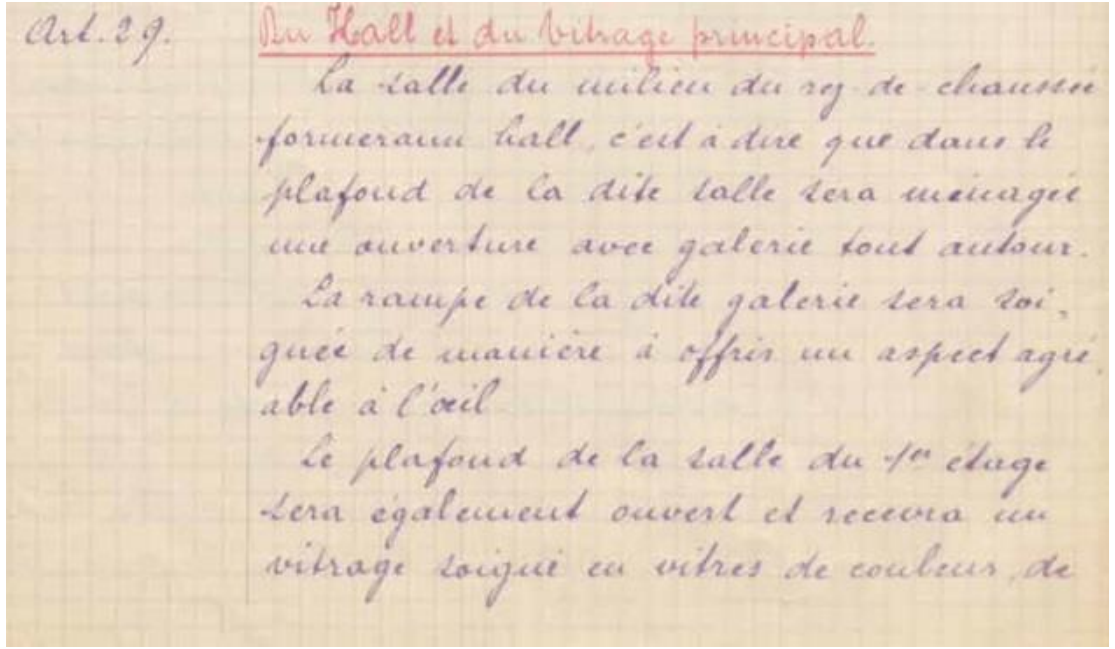 Art. 29. Du Hall et du Vitrage principal.
La salle du milieu du rez-de-chaussée
formera un hall, c'est à dire que dans le
plafond de la dite salle sera ménagée
une ouverture avec galerie tout autour.
La rampe de la dite galerie sera soi=
gnée de manière à offrir un aspect agré
able à l'œil
Le plafond de la salle du 1er étage
sera également ouvert et recevra un
vitrage soigné en vitres de couleur, de